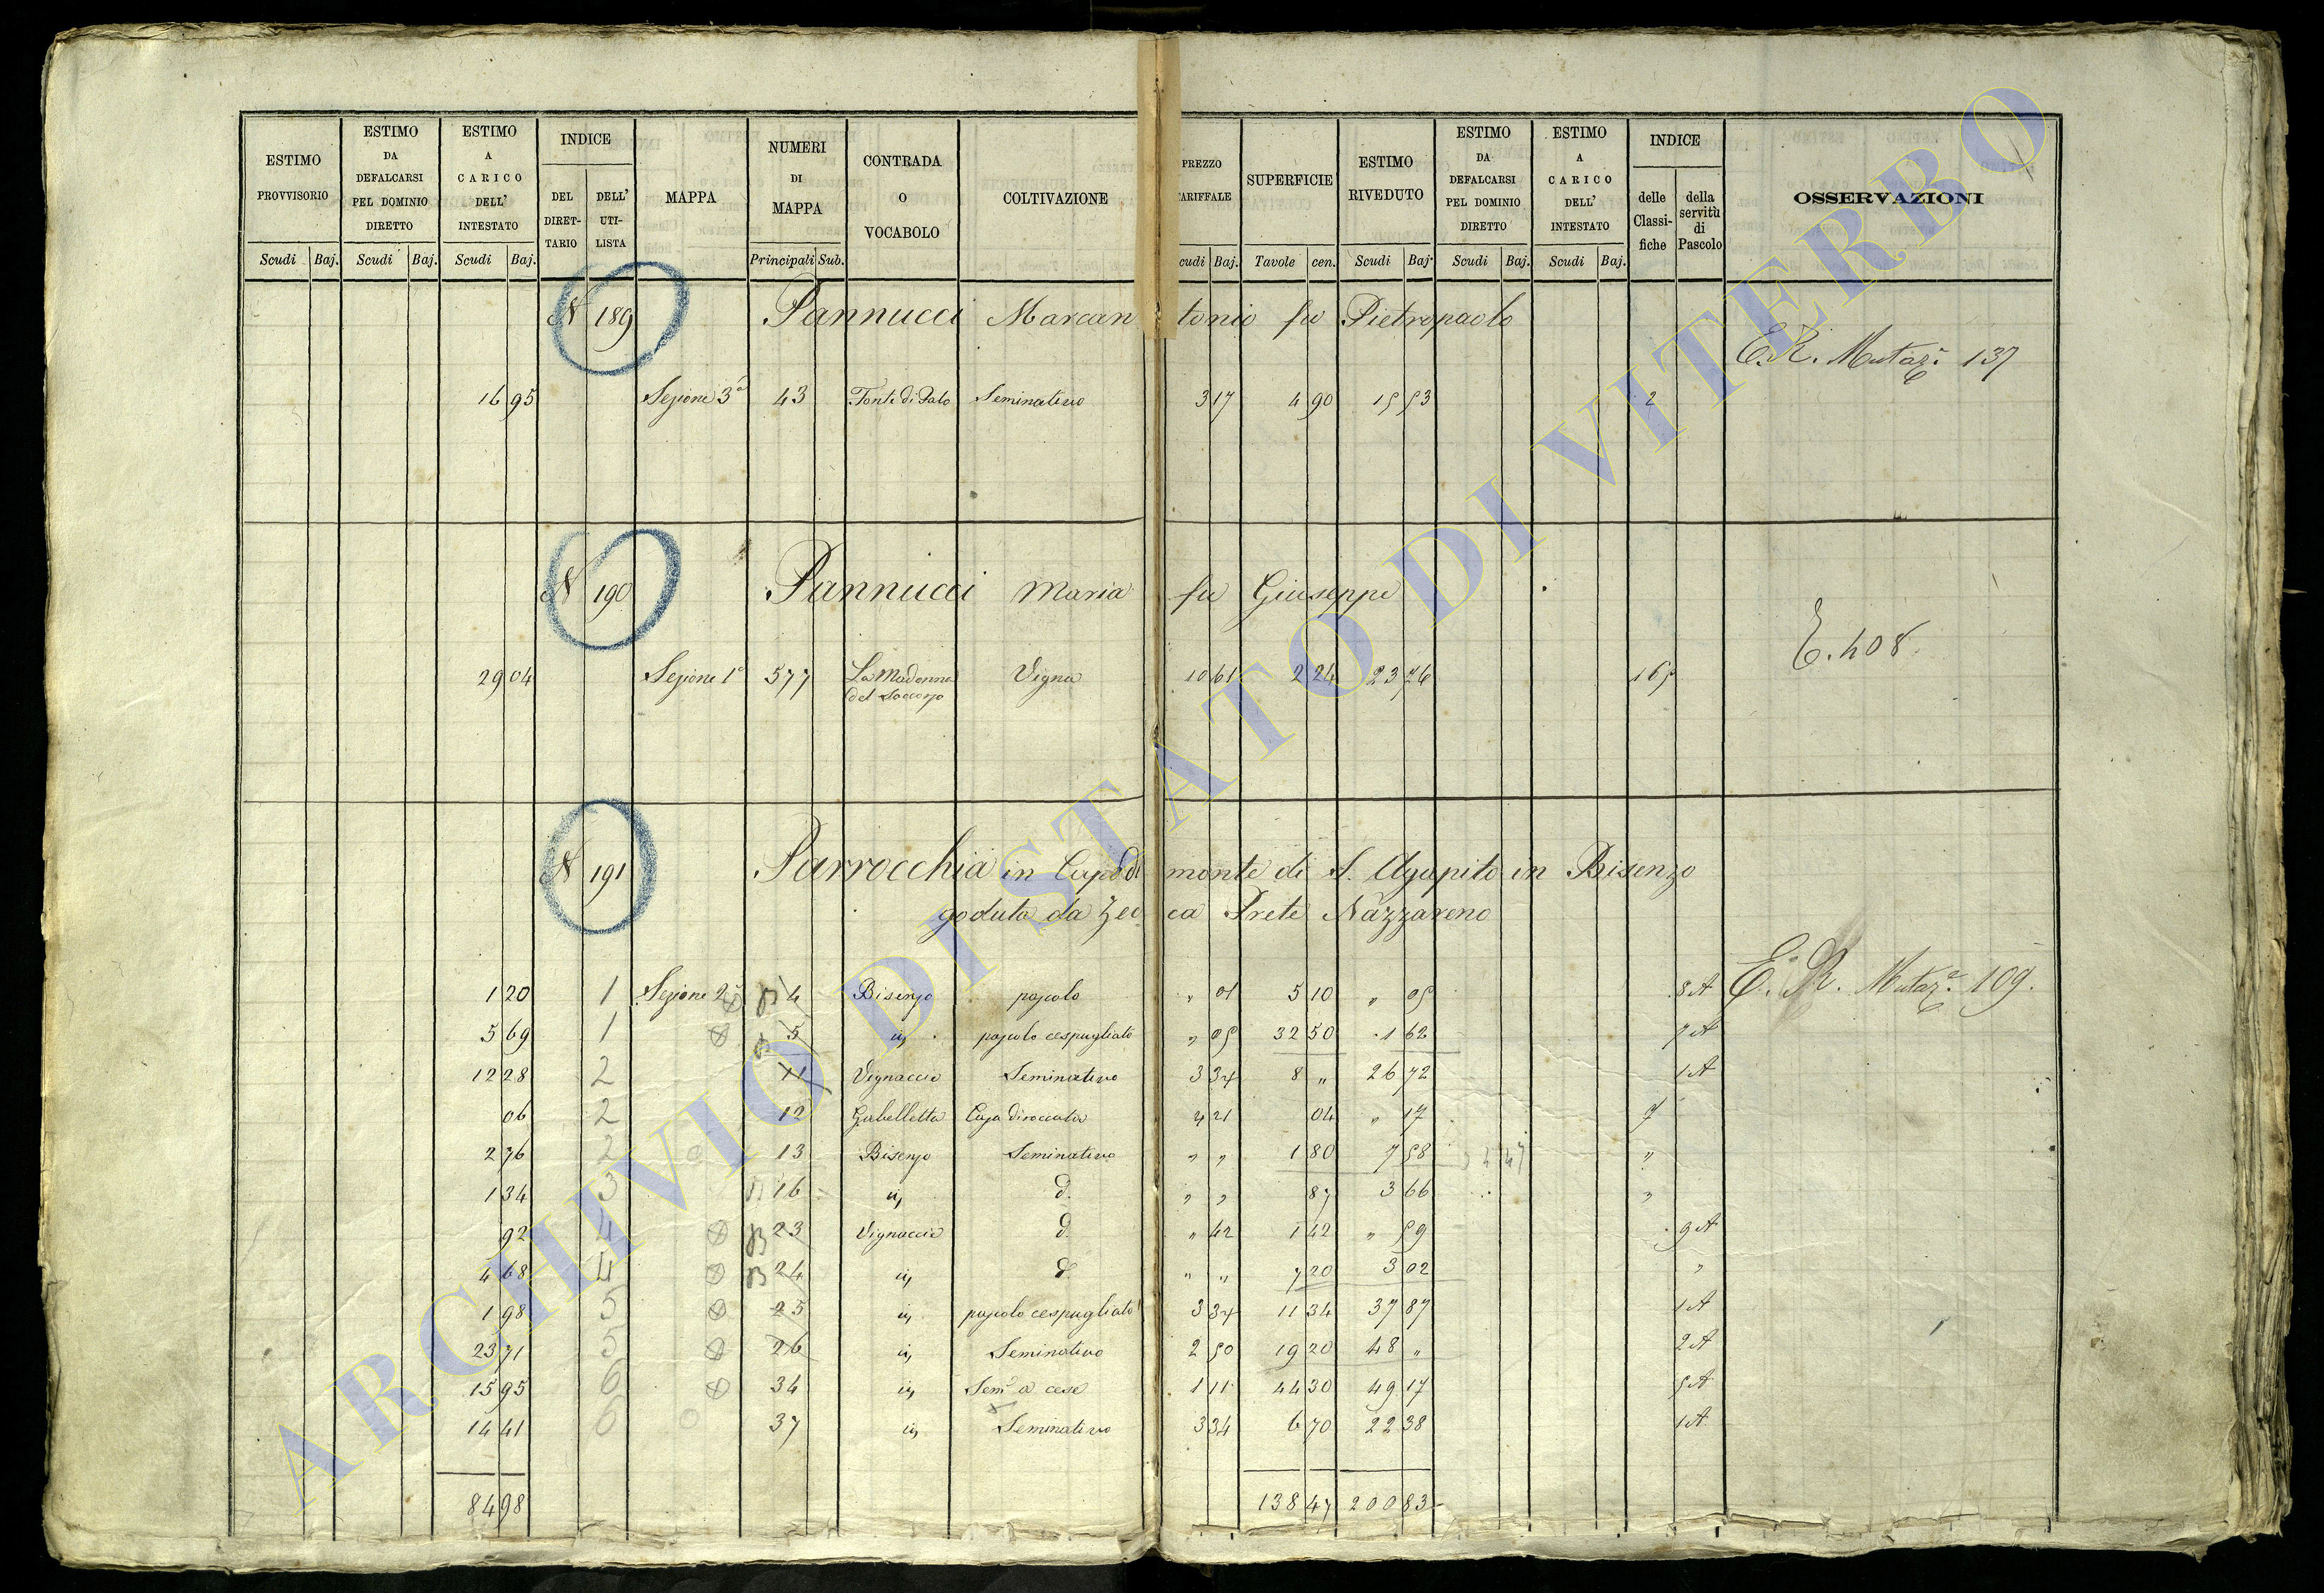 ESTIMO PROVVISORIO | ESTIMO DA DEFALCARSI PEL DOMINIO DIRETTO | ESTIMO A CARICO DELL' INTESTATO | INDICE | MAPPA | NUMERI DI MAPPA | CONTRADA O VOCABOLO | COLTIVAZIONE | PREZZO TARIFFALE | SUPERFICIE | ESTIMO RIVEDUTO | ESTIMO DA DEFALCARSI PEL DOMINIO DIRETTO | ESTIMO A CARICO DELL' INTESTATO | INDICE | OSSERVAZIONI
DEL DIRETTARIO | DELL' UTILISTA | delle Classifiche | della servitù di Pascolo
Scudi | Baj. | Scudi | Baj. | Scudi | Baj. | Principali | Sub. | cudi | Baj. | Tavole | cen. | Scudi | Baj. | Scudi | Baj. | Scudi | Baj.
N 189 Pannucci Marcantonio fu Pietropaolo
E. R. Mutaz.e 137
16 95 Sezione 3a 43 Seminativo 3 17 4 90 15 53 2
N 190 Pannucci Maria fu Giuseppe
E. 408.
29 04 Sezione 1a 577 La Madonna del Soccorso Vigna 10 61 2 24 23 76 165
N 191 Parrocchia in Capodimonte di S. Agapito in Bisenzo
goduta da Zecca Prete Nazzareno
E. R. Mutaz.e 109.
1 20 1 Sezione 2a 4 Bisenzo pascolo " 01 5 10 " 05 8A
5 69 1 5 ij pascolo cespugliato " 05 32 50 1 62 7A
12 28 2 11 Vignaccia Seminativo 3 34 8 " 26 72 1A
06 2 12 Gabelletta Casa diroccata 4 21 04 " 17
2 76 2 13 Bisenzo Seminativo " " 1 80 7 58 "
1 34 3 16 ij d. " " 87 3 66 "
92 4 B 23 Vignaccia d. " 42 1 42 " 59 9A
4 68 4 B 24 ij d. " " 7 20 3 02 "
1 98 5 25 ij pascolo cespugliato 3 34 11 34 37 87 1A
23 71 5 26 ij Seminativo 2 50 19 20 48 " 2A
15 95 6 34 ij Sem.o a cese 1 11 44 30 49 17 5A
14 41 6 37 ij Seminativo 3 34 6 70 22 38 1A
84 98 138 47 200 83
ARCHIVIO DI STATO DI VITERBO